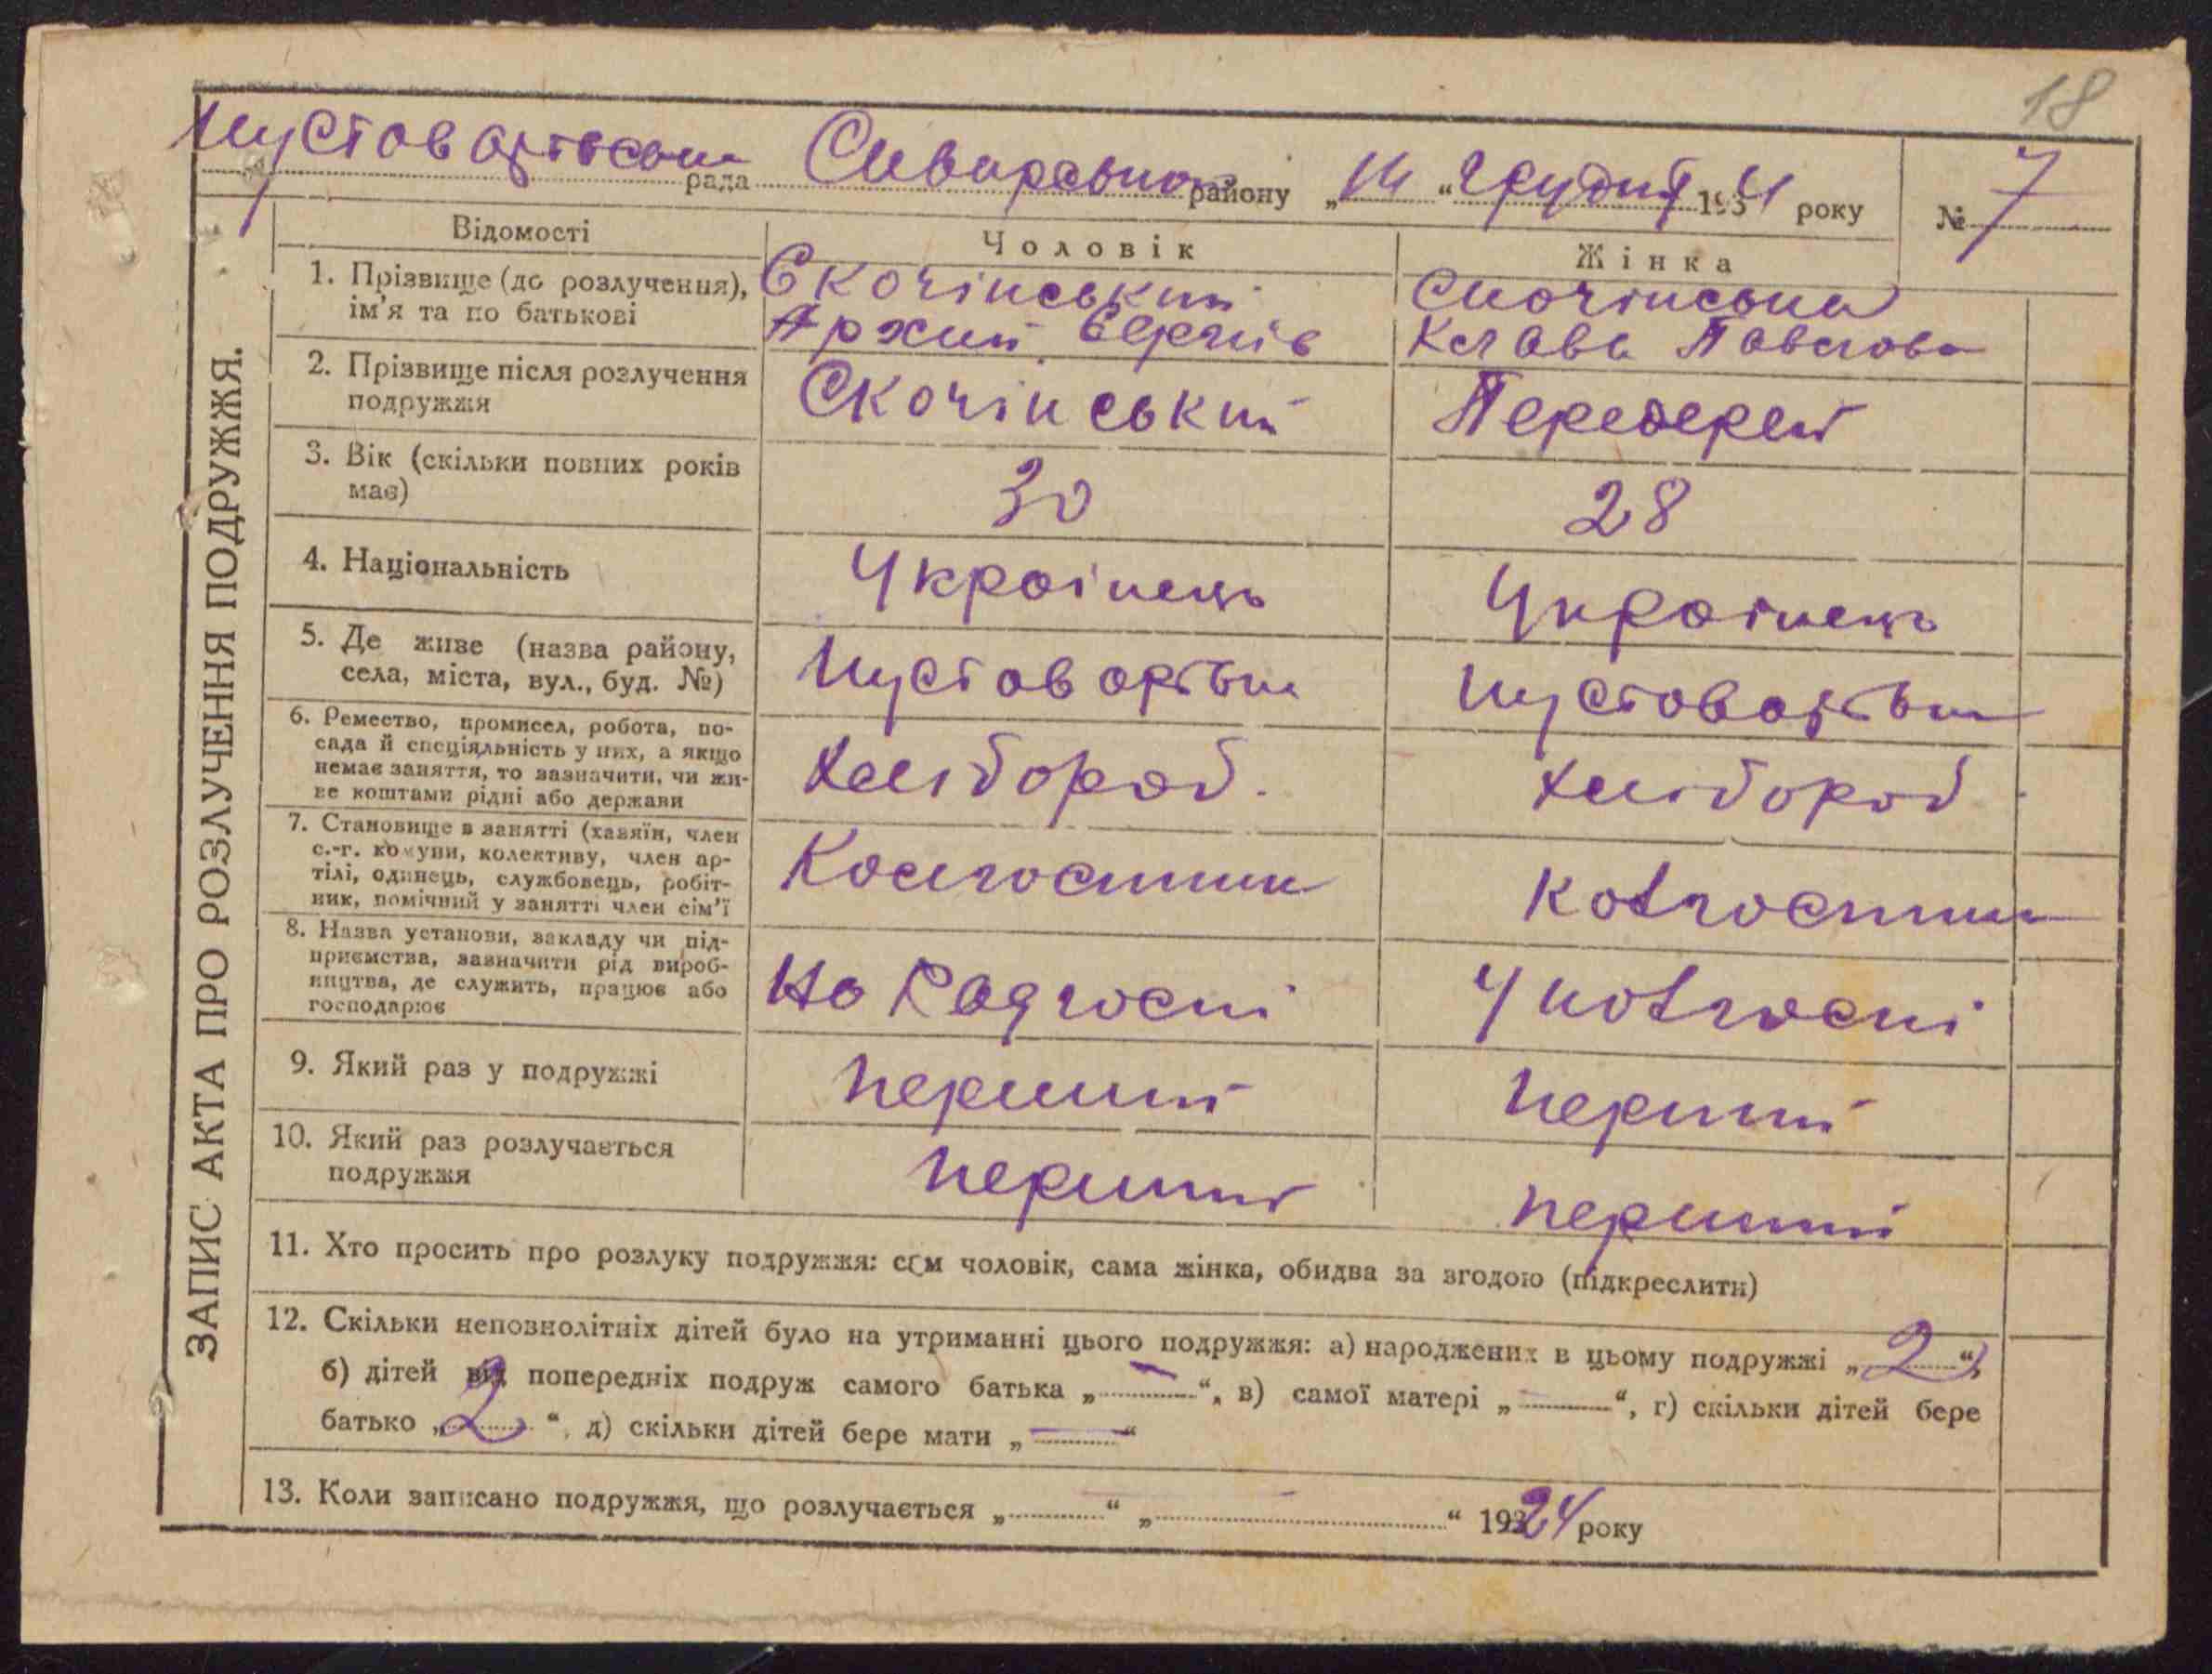 18
Пустоварівська рада Сквирського району „14“ грудня 1934 року № 7
ЗАПИС АКТА ПРО РОЗЛУЧЕННЯ ПОДРУЖЖЯ.
Відомості Чоловік Жінка
1. Прізвище (до розлучення), ім'я та по батькові
Скочінський
Скочінська
Клава Павлова
2. Прізвище після розлучення подружжя
Скочінський
Передерей
3. Вік (скільки повних років має)
30 28
4. Національність
Україінець Україінець
5. Де живе (назва району, села, міста, вул., буд. №)
6. Ремество, промисел, робота, по-
сада й спеціяльність у них, а якщо
немає заняття, то зазначити, чи жи-
ве коштами рідні або держави
Хлібороб. Хлібороб
7. Становище в занятті (хазяїн, член
с.-г. комуни, колективу, член ар-
тілі, одинець, службовець, робіт-
ник, помічний у занятті член сім'ї
Колгоспник Колгоспник
8. Назва установи, закладу чи під-
приємства, зазначити рід вироб-
ництва, де служить, працює або
господарює
На Радгоспі У колгоспі
9. Який раз у подружжі
перший перший
10. Який раз розлучається
подружжя
перший перший
11. Хто просить про розлуку подружжя: сам чоловік, сама жінка, обидва за згодою (підкреслити)
12. Скільки неповнолітніх дітей було на утриманні цього подружжя: а) народжених в цьому подружжі „2“,
б) дітей від попередніх подруж самого батька „—“, в) самої матері „—“, г) скільки дітей бере
батько „2“, д) скільки дітей бере мати „—“
13. Коли записано подружжя, що розлучається „ “ „ “ 1924 року